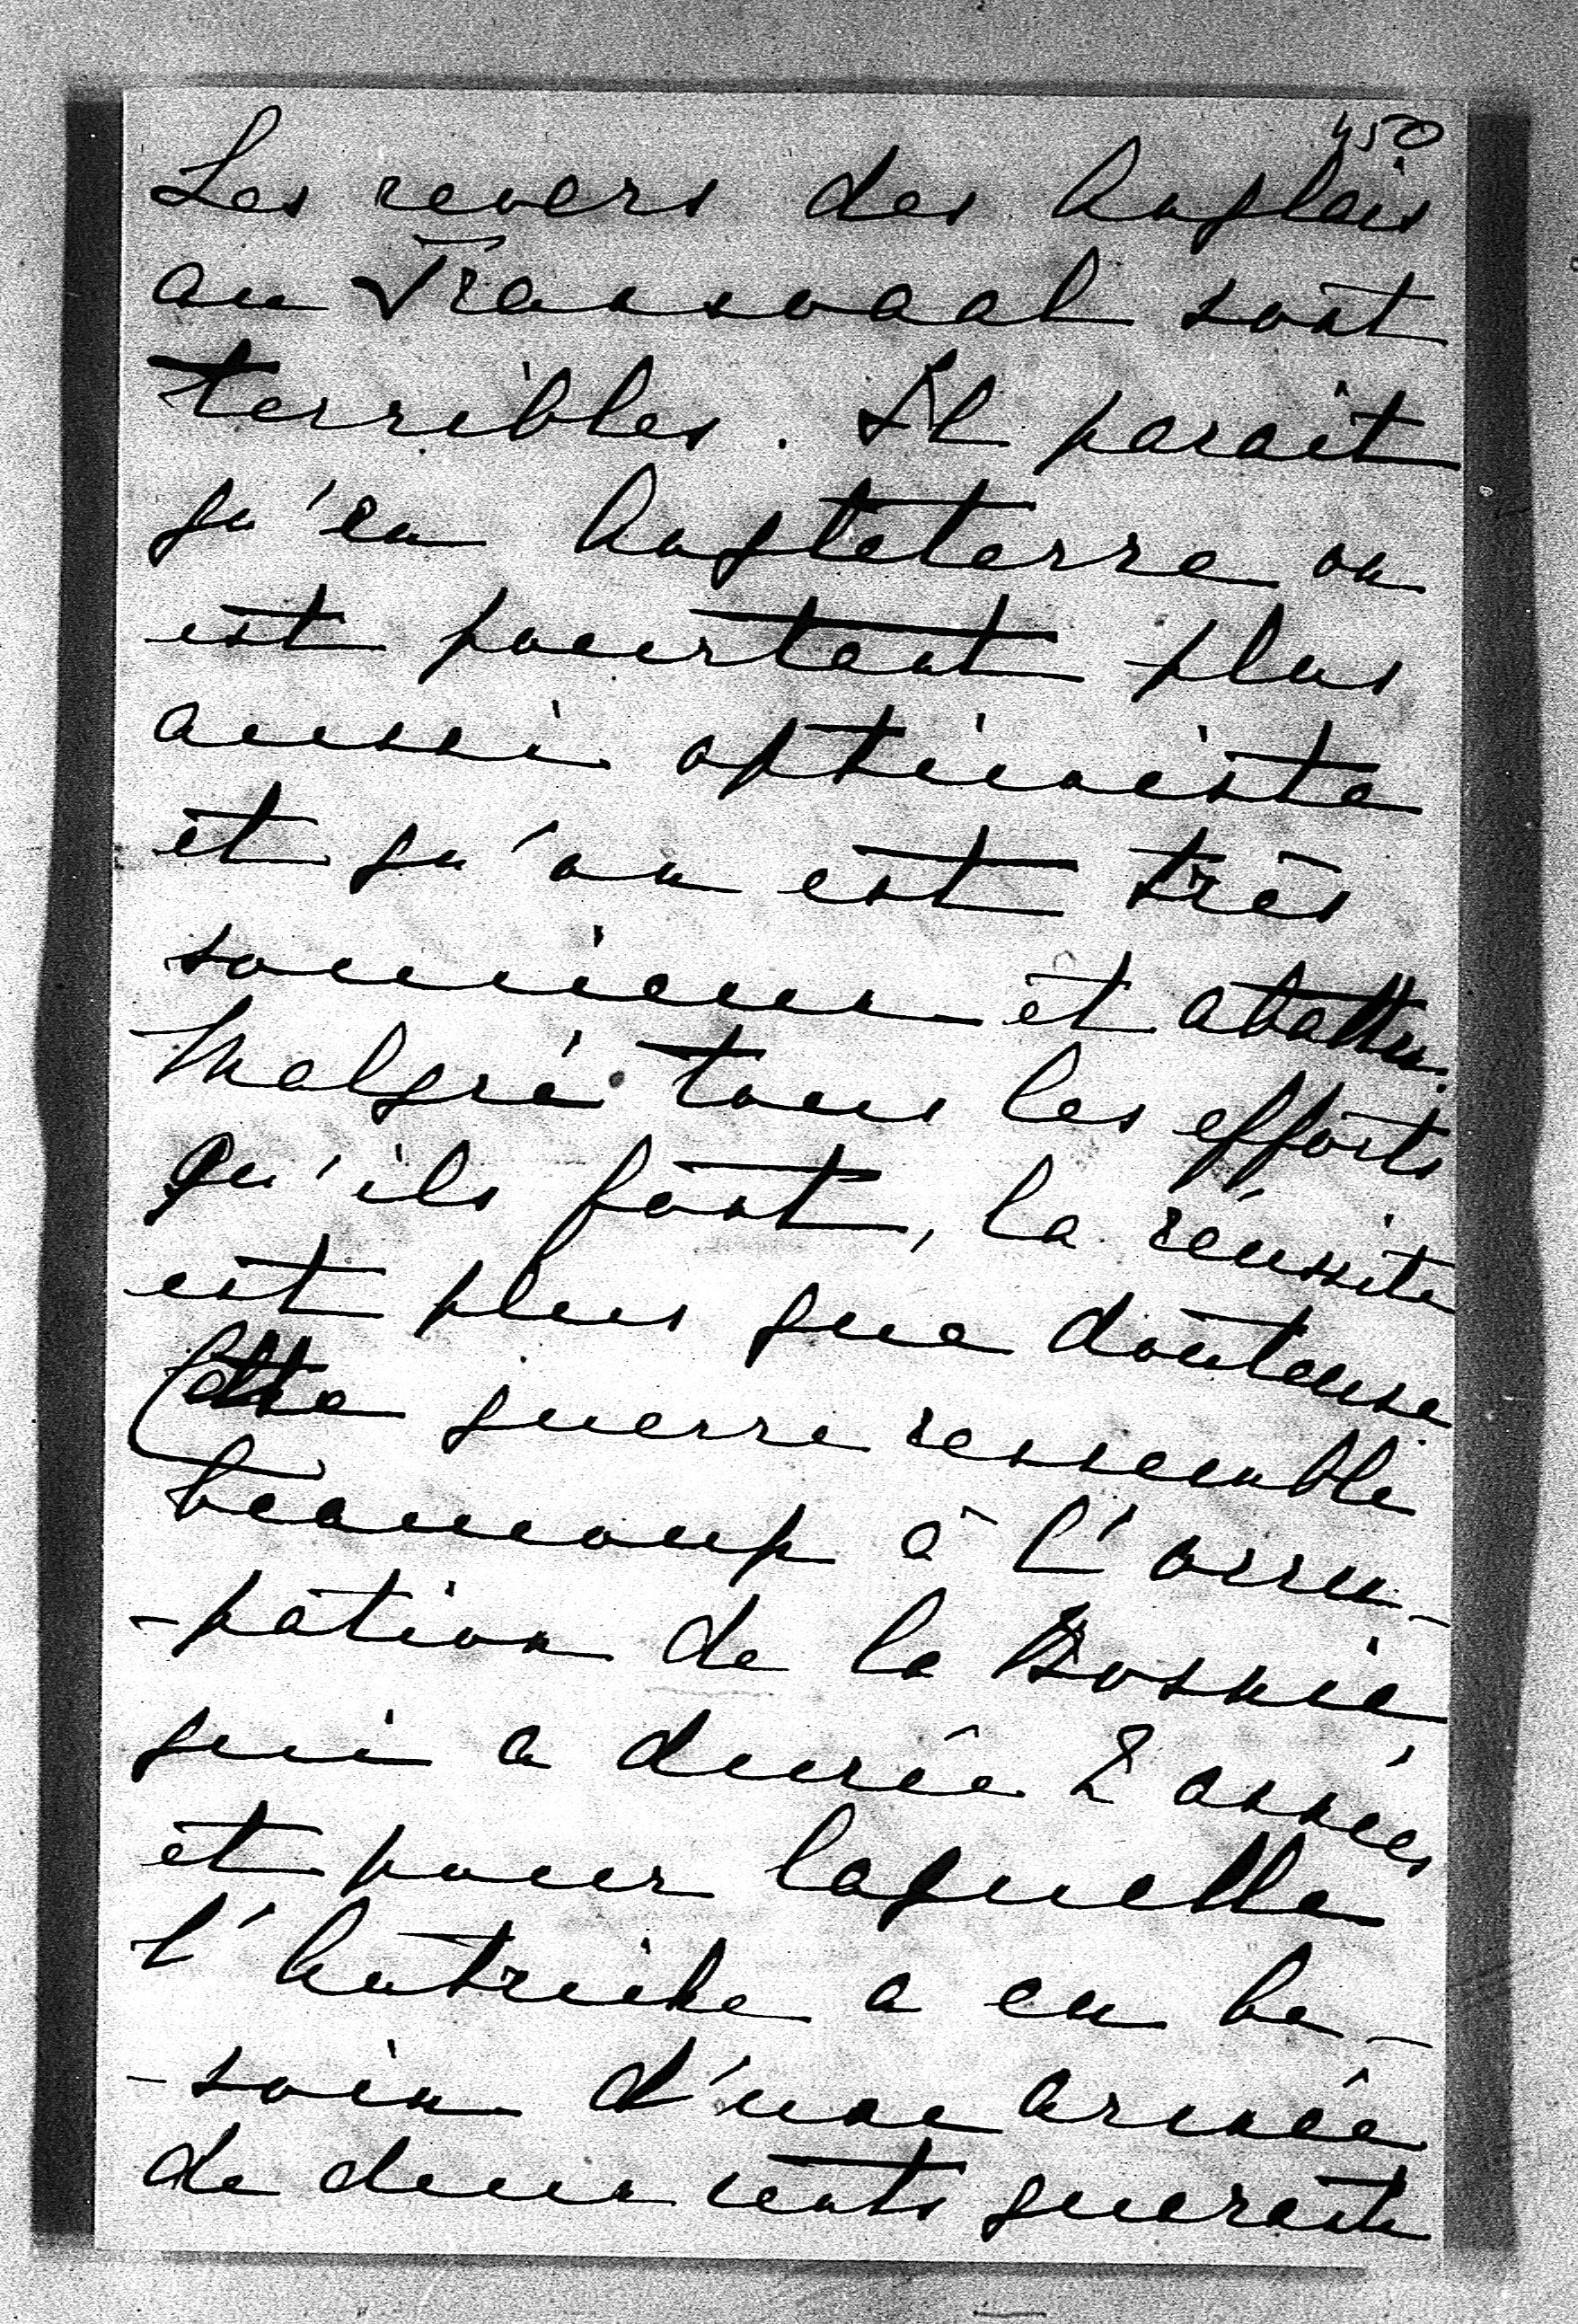 450
Les revers des Anglais
au Transvaal sont
terribles. Il parait
qu'en Angleterre on
est pourtant plus
aussi optimiste
et qu'on est très
soucieux et abattu.
Malgré tous les efforts
qu'ils font, la réussite
est plus que douteuse.
Cette guerre ressemble
beaucoup à l'occu-
-pation de la Bosnie
qui a durée 2 années
et pour laquelle
l'Autriche a eu be-
-soin d'une armée
de deux cents quarante